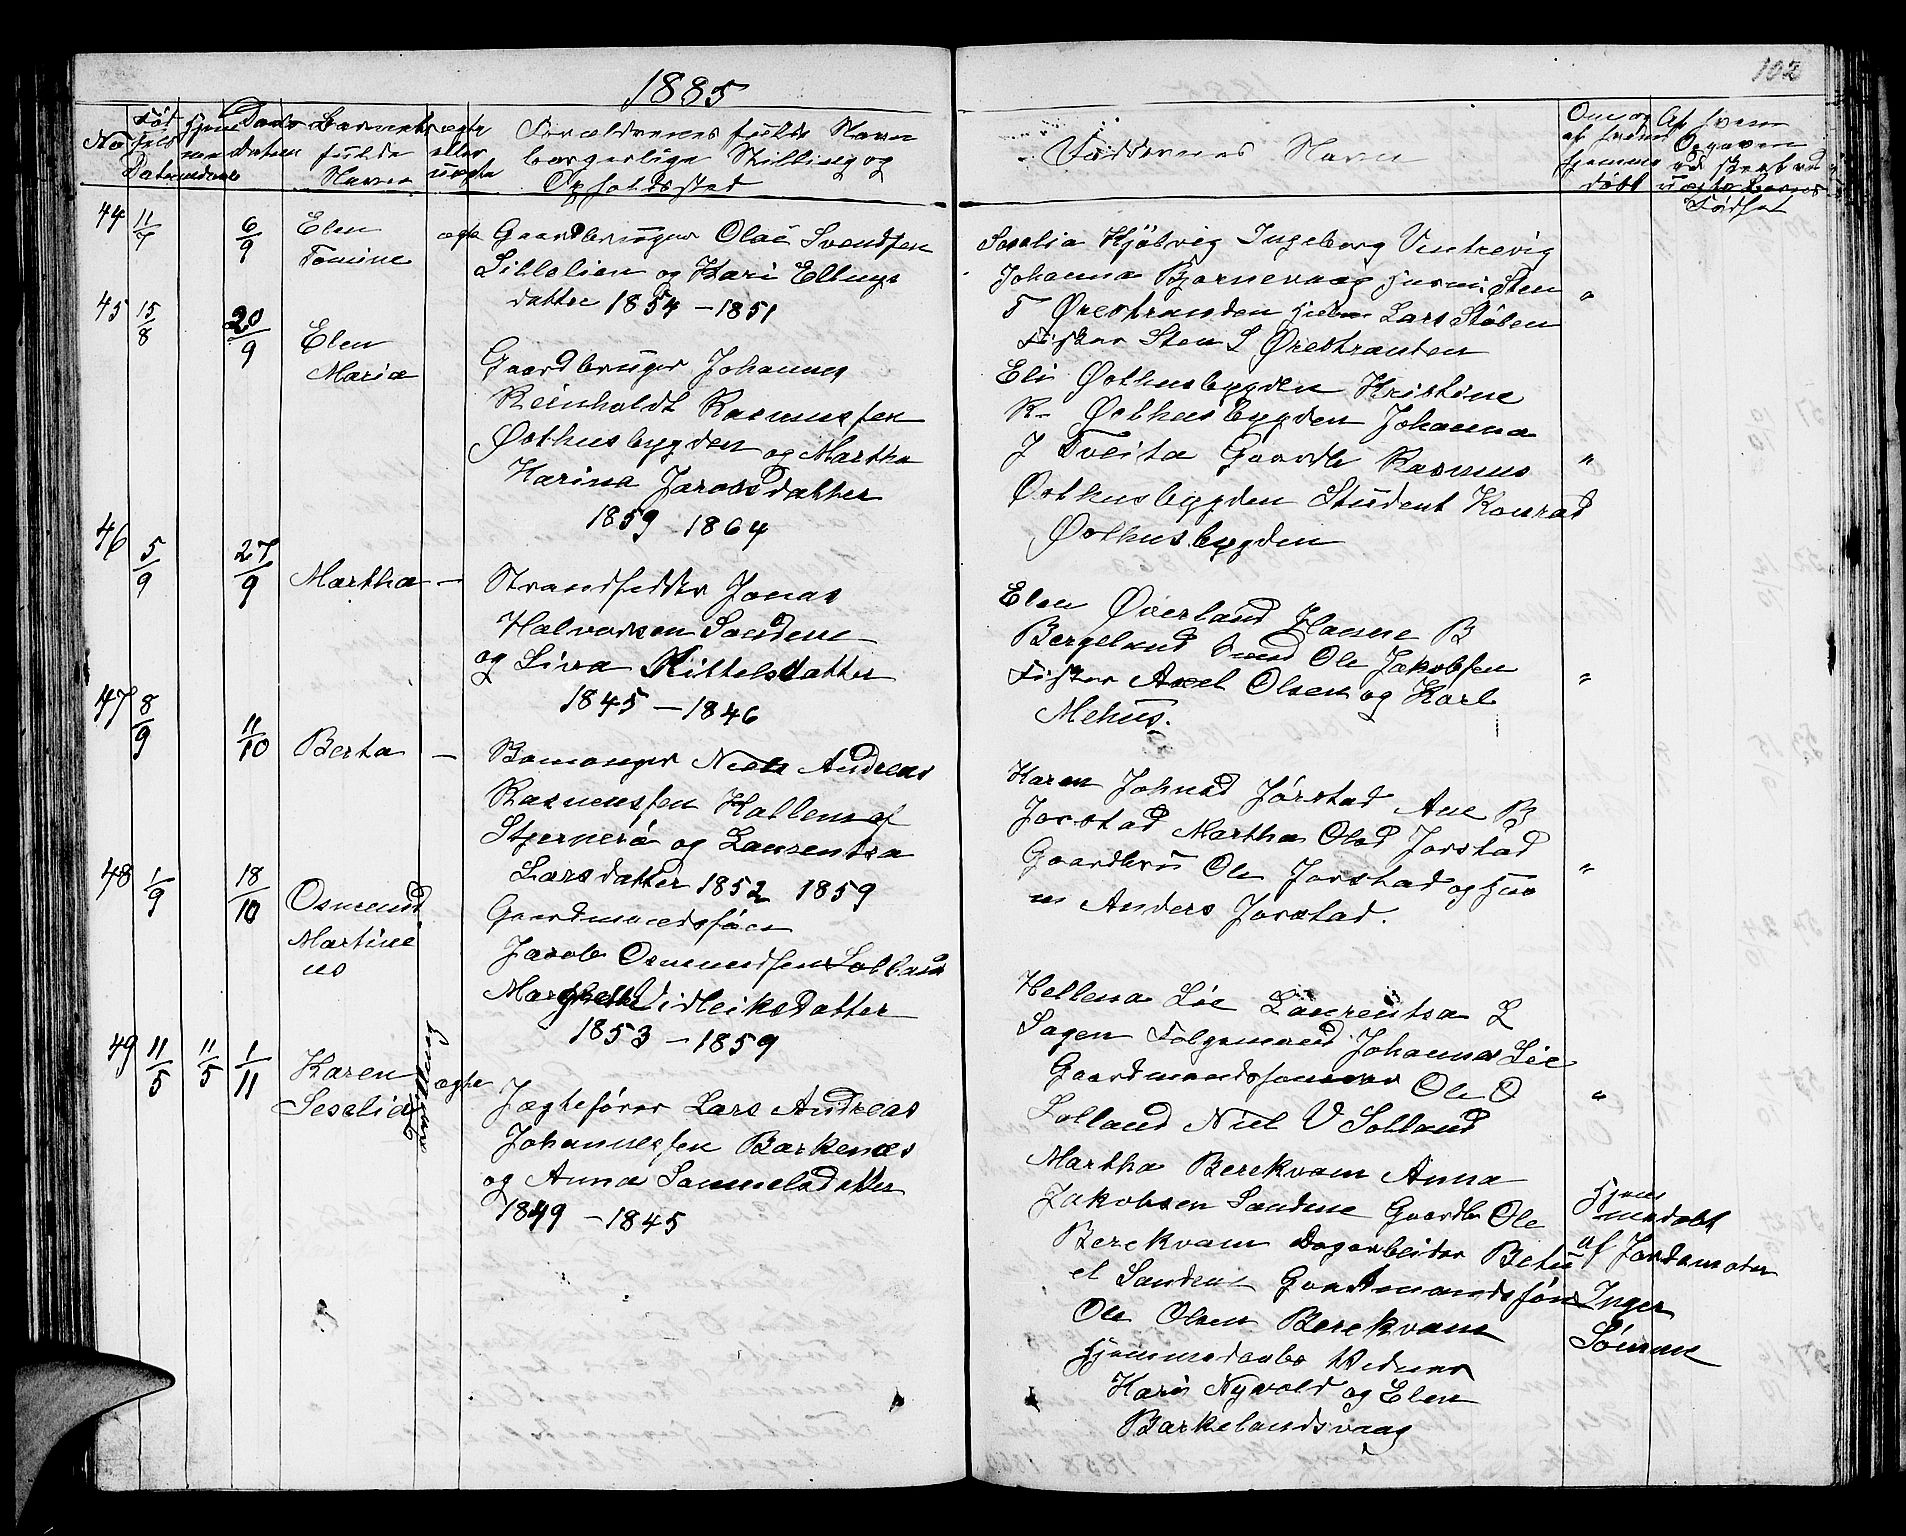 1885
102
No Fødsels Datum Hjemme Daabs Datum Barnets fulde Navn ægte eller uægte
Forældrenes fulde Navn
borgerlige Stilling og
Opholdssted
Faddernes Navn
Om og af hvem hjemme døbt
Af hvem Opgaven
44 11/7 6/9 Elen Tomine ægte
Gaardbruger Olai Svendsen
Lillelien og Kari Ellings
datter 1854 - 1851
Serelia Kjølvig Ingeborg Vintrevig
Johanna Bjørnevaag Husm: Sten
T Ørestranden Lars Støben
Fisker Sten S Ørestranden
45 15/8 20/9 Elen Maria
Gaardbruger Johannes
Reinholdt Rasmussen
Østhusbygden og Martha
Karina Jacobsdatter
1859 - 1864
Eli Østhusbygden Kristine
R- Østhusbygden Johanna
J Tveita Gaardb Rasmus
Østhusbygden Student Konrad
Østhusbygden
"
46 5/9 27/9 Martha —
Strandsidder Jonas
Halvorsen Sandene
og Siva Kittelsdatter
1845 - 1846
Elen Øverland Hanne B
Bergeland Ole Jakobsen
Fisker Axel Olsen og Karl
Mehus.
"
47 8/9 11/10 Berta —
Niels Andreas
Rasmussen Hallem af
Stjernerö og Laurentsa
Larsdatter 1852 1859
Karen Johnsd Jørstad Ane B
Jorstad Martha Olsd Jorstad
Gaardbru Ole Jorstad og Hus
m Anders Jorstad.
"
48 1/9 18/10 Osmund Martine us
Gaardmandssøn
Jacob Osmundsen Solland
Margrethe Vidleiksdatter
1853 - 1859
Hellena Lie Laurentsa L
Sagen Følgemand Johannes Lie
Gaardmandssønnen Ole O
Solland Niel V Solland
"
49 11/5 11/5 1/11 Karen Seselia ægte
Jægtefører Lars Andreas
Johannessen Barkenæs
og Anna Samuelsdatter
1849 - 1845
Martha Berekvam Anna
Jakobsen Sandene Gaardb Ole
Berekvam Dagarbeider Betu
el Sandene Gaardmandssøn
Ole Olsen Berekvam
Hjemmedaabs Vidner
Kari Nyvold og Elen
Barkelandsvaag
Hjem
medøbt
af Jordemoder
Inger
Sörman